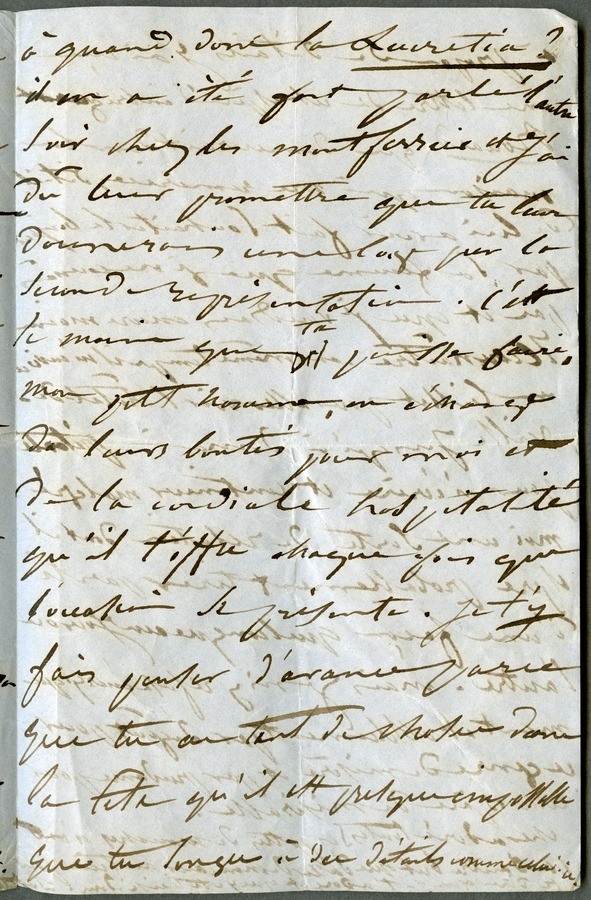 à quand donc la Lucretia?
il en a été fort parlé l'autre
soir chez les montferrier et j'ai
dû leur promettre que tu leur
donnerais une loge pour la
seconde représentation. c'est
le moins que tu puisse faire,
mon ptit homme, en échange
de leurs bontés pour moi et
de la cordiale hospitalité
qu'il t'offre chaque fois que
l'occasion se présente. je t'y
fais penser d'avance parce
que tu as tant de choses dans
la tête qu'il est presque impossible
que tu songes à des détails comme celui-ci.